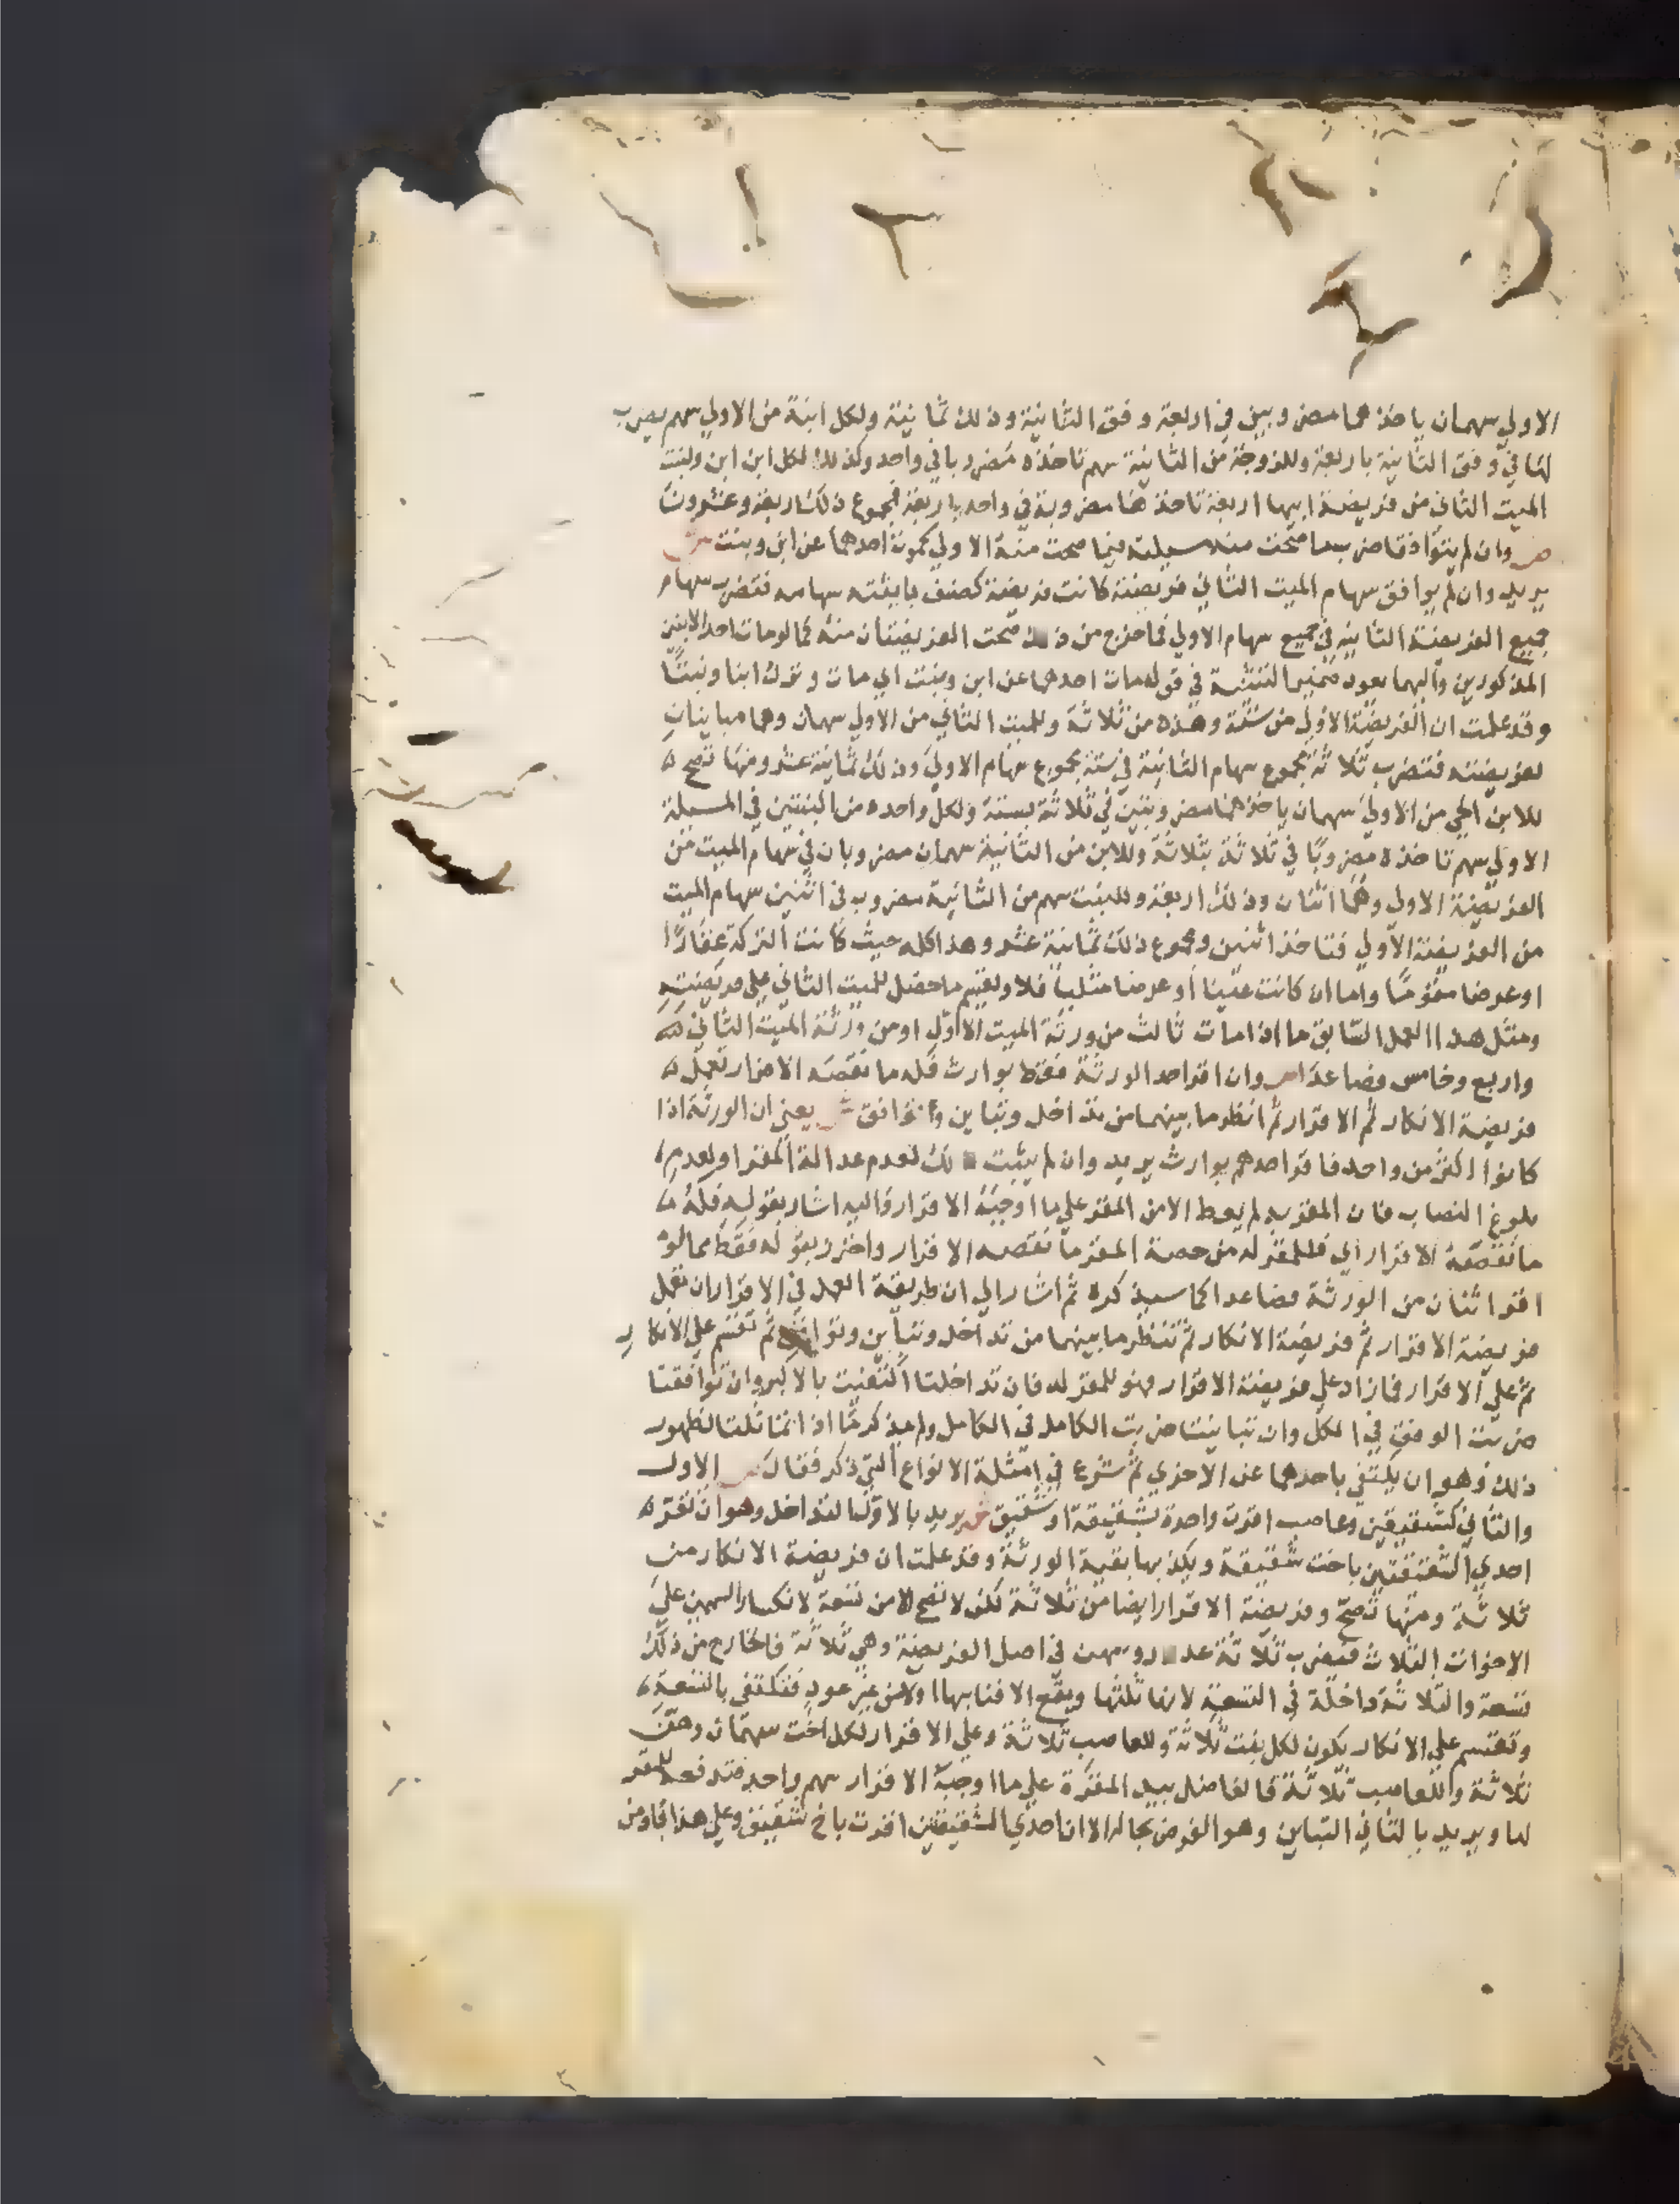 الاولي سهمان ياخذهما مضروبين في اربعة وفق الثانية وذلك ثمانية ولكل ابنة من الاولي سهم يضرب
لها في وفق الثانية باربعة وللزوجة من الثانية سهم تاخذه مضروبا في واحد وكذلك لكل ابن ابن ولبنت
الميت الثاني من فريضة ابيها اربعة تاخذها مضروبة في واحد باربعة فمجموع ذلك اربعة وعشرون
ص وان لم يتوافقا ضرب ما صحت منه مسيلته فيما صحت منه الاولي كموت احدهما عن ابن وبنت ش
يريد وان لم يوافق سهام الميت الثاني فريضته كانت فريضة كصنف باينته سهامه فتضرب سهام
جميع الفريضة الثانية في جميع سهام الاولي فما خرج من ذلك صحت الفريضتان منه كما لو مات احد الابنين
المذكورين واليهما يعود ضمير التثنية في قوله مات احدهما عن ابن وبنت اي مات وترك ابنا وبنتا
وقد علمت ان الفريضة الاولي من ستة وهذه من ثلاثة وللميت الثاني من الاولي سهمان وهما مباينان
لفريضته فتضرب ثلاثة مجموع سهام الثانية في ستة مجموع سهام الاولي وذلك ثمانية عشر ومنها تصح
للابن الحي من الاولي سهمان ياخذهما مضروبتين في ثلاثة بستة ولكل واحده من البنتين في المسيلة
الاولي سهم تاخذه مضروبا في ثلاثة بثلاثة وللابن من الثانية سهمان مضروبان في سهام الميت من
الفريضة الاولي وهما اثنان وذلك اربعة وللبنت سهم من الثانية مضروب في اثنين سهام الميت
من الفريضة الاولي فتاخذ اثنين ومجموع ذلك ثمانية عشر وهذا كله حيث كانت التركة عقارا
او عرضا مقوما واما ان كانت عينا او عرضا مثليا فلا ولتقسم ما حصل للميت الثاني علي فريضته
ومثل هذا العمل السابق ما اذا مات ثالث من ورثة الميت الاول او من ورثة الميت الثاني
واربع وخامس فصاعدا ص وان اقر احد الورثة فقط بوارث فله ما نقصه الاقرار تعمل
فريضة الانكار ثم الاقرار ثم انظر ما بينهما من تداخل وتباين وتوافق ش يعني ان الورثة اذا
كانوا اكثر من واحد فاقر احدهم بوارث يريد وان لم يثبت ذلك لعدم عدالة المقر او لعدم
بلوغ النصاب فان المقر به لم يعط الا من المقر علي ما اوجبه الاقرار واليه اشار بقوله فله
ما نقصه الاقرار اي فللمقر له من حصة المقر ما نقصه الاقرار واحترز بقوله فقط مما لو
اقر اثنان من الورثة فصاعدا كما سيذكره ثم اشار الي ان طريقة العمل في الاقرار ان تعمل
فريضة الاقرار ثم فريضة الانكار ثم تنظر ما بينهما من تداخل وتباين وتوافق ثم تقسم علي الانكار
ثم علي الاقرار فما زاد علي فريضة الاقرار فهو للمقر له فان تداخلتا اكتفيت بالاكبر وان توافقتا
ضربت الوفق في الكل وان تباينتا ضربت الكامل في الكامل ولم يذكر ما اذا تماثلتا لظهور
ذلك وهو ان يكتفي باحدهما عن الاخري ثم شرع في امثلة الانواع التي ذكر فقال ص الاول
والثاني كشقيقتين وعاصب اقرت واحدة بشقيقة او شقيق ش يريد بالاول التداخل وهو ان تقر
احدي الشقيقتين باخت شقيقة ويكذبها بقية الورثة وقد علمت ان فريضة الانكار من
ثلاثة ومنها تصح وفريضة الاقرار ايضا من ثلاثة لكن لا تصح الا من تسعة لانكسار السهمين علي
الاخوات الثلاث فيضرب ثلاثة عدد روسهن في اصل الفريضة وهي ثلاثة فالخارج من ذلك
تسعة والثلاثة داخلة في التسعة لانها ثلثها ويقع الافنا بها اولا من غير عود فتكتفي بالتسعة
وتقسم علي الانكار يكون لكل بنت ثلاثة وللعاصب ثلاثة وعلي الاقرار لكل اخت سهمان وهن
ثلاثة وللعاصب ثلاثة فالفاضل بيد المقرة علي ما اوجبه الاقرار سهم واحد فتدفعه للمقر
لها ويريد بالثاني التباين وهو الفرض بحاله الا ان احدي الشقيقتين اقرت باخ شقيق وعلي هذا